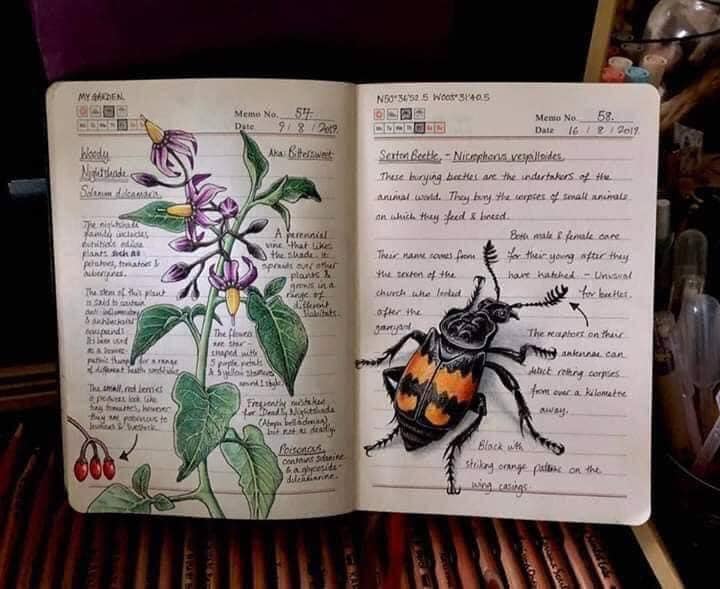 MY GARDEN.
Memo No. 57.
Date 9 / 8 / 2019.
Woody
Nightshade
Solanum dulcamara.
Aka: Bittersweet
The nightshade
family includes
nutritious edible
plants such as
potatoes, tomatoes &
aubergines.
The stem of this plant
is said to contain
anti-inflammatory
& antibacterial
compounds.
It's been used
as a homeo-
pathic therapy for a range
of different health conditions.
The small, red berries
it produces look like
tiny tomatoes, however
they are poisonous to
humans & livestock.
A perennial
vine that likes
the shade. It
sprawls over other
plants &
grows in a
range of
different
habitats.
The flowers
are star-
shaped with
5 purple petals
& yellow stamens
round 1 style.
Frequently mistaken
for Deadly Nightshade
(Atropa belladonna),
but not as deadly.
Poisonous,
contains solanine
& a glycoside-
dulcamarine.
N50°36'52.5 W003°31'40.5
Memo No. 58.
Date 16 / 8 / 2019.
Sexton Beetle, - Nicrophorus vespilloides.
These burying beetles are the undertakers of the
animal world. They bury the corpses of small animals
on which they feed & breed.
Both male & female care
for their young after they
have hatched. - Unusual
for beetles.
Their name comes from
the sexton of the
church who looked
after the
graveyard
The receptors on their
antennae can
detect rotting corpses
from over a kilometre
away.
Black with
striking orange patterns on the
wing casings.